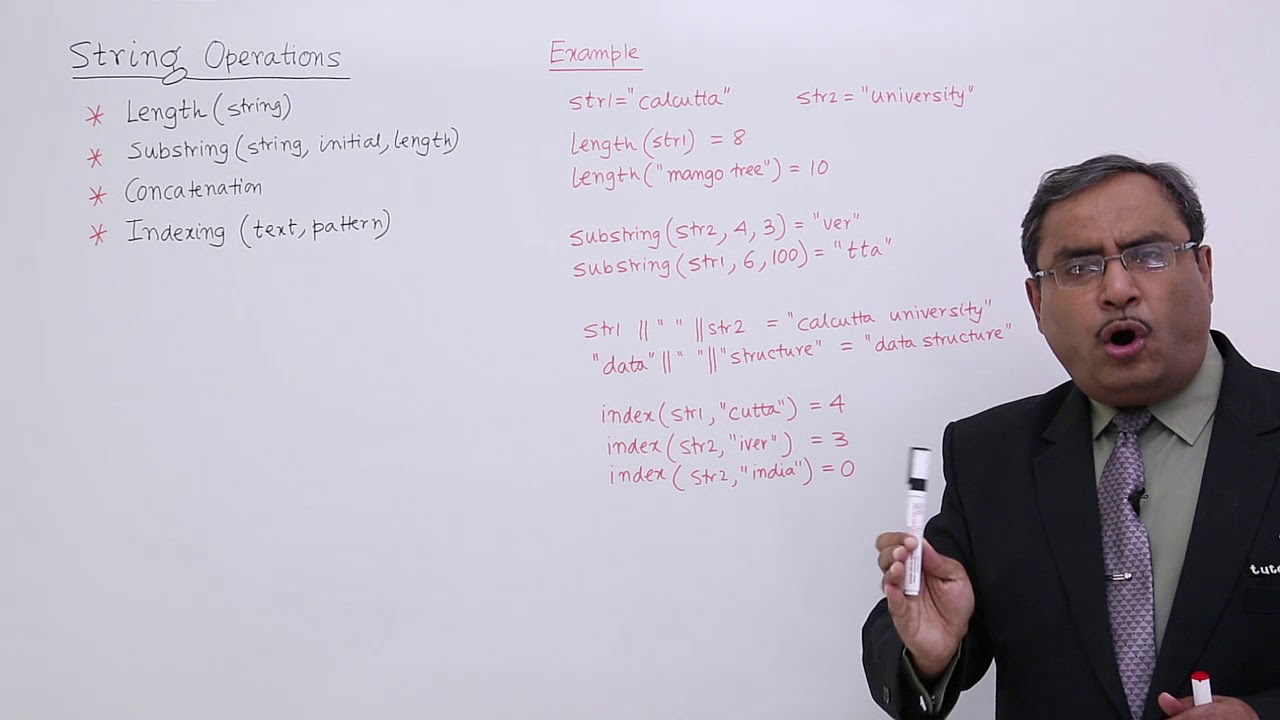 String Operations
* Length (string)
* Substring (string, initial, length)
* Concatenation
* Indexing (text, pattern)
Example
str1="calcutta" str2="university"
length (str1) = 8
length ("mango tree") = 10
substring (str2, 4, 3) = "ver"
substring (str1, 6, 100) = "tta"
str1 || " " || str2 = "calcutta university"
"data" || " " || "structure" = "data structure"
index (str1, "cutta") = 4
index (str2, "iver") = 3
index (str2, "india") = 0